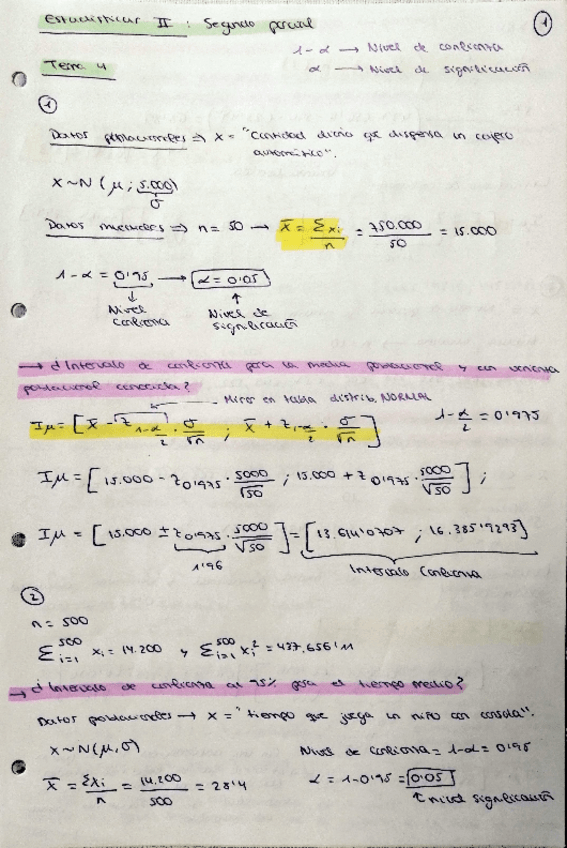 Estadística II : Segundo parcial
1
1-α → Nivel de confianza
Tema 4
α → Nivel de significación
1
Datos poblacionales ⇒ X = "Cantidad diaria que dispensa un cajero
automático".
X~N(μ; 5.000)
σ
Datos muestrales ⇒ n = 50 → X̄ = Σxi/n = 750.000/50 = 15.000
1-α = 0'95 → α = 0'05
Nivel confianza
Nivel de significación
→ ¿Intervalo de confianza para la media poblacional y con varianza
poblacional conocida?
Mirar en tabla distrib. NORMAL
Iμ = [X̄ - z1-α/2 · σ/√n ; X̄ + z1-α/2 · σ/√n]
1-α/2 = 0'975
Iμ = [15.000 - z0'975 · 5000/√50 ; 15.000 + z0'975 · 5000/√50] ;
Iμ = [15.000 ± z0'975 · 5000/√50] = [13.614'0707 ; 16.385'9293]
1'96
Intervalo Confianza
2
n = 500
Σ500i=1 xi = 14.200 y Σ500i=1 xi² = 437.656'11
→ ¿Intervalo de confianza al 95% para el tiempo medio?
Datos poblacionales → X = "tiempo que juega un niño con consola".
X~N(μ,σ)
Nivel de confianza = 1-α = 0'95
X̄ = Σxi/n = 14.200/500 = 28'4
α = 1-0'95 = 0'05
nivel significación